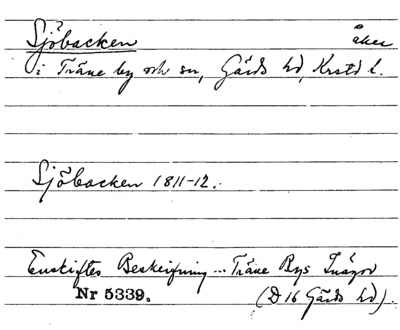 Sjöbacken åker
i Träne by och sn, Gärds hd, Krstd l.
Sjöbacken 1811-12.
Enskiftes Beskrifning ... Träne Bys Inägor
Nr 5339. (D 16 Gärds hd).